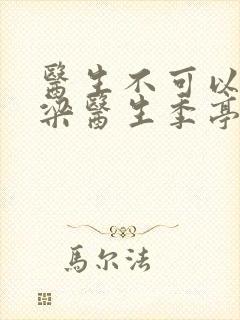 醫生不可以
梁醫生季亭
馬尔法